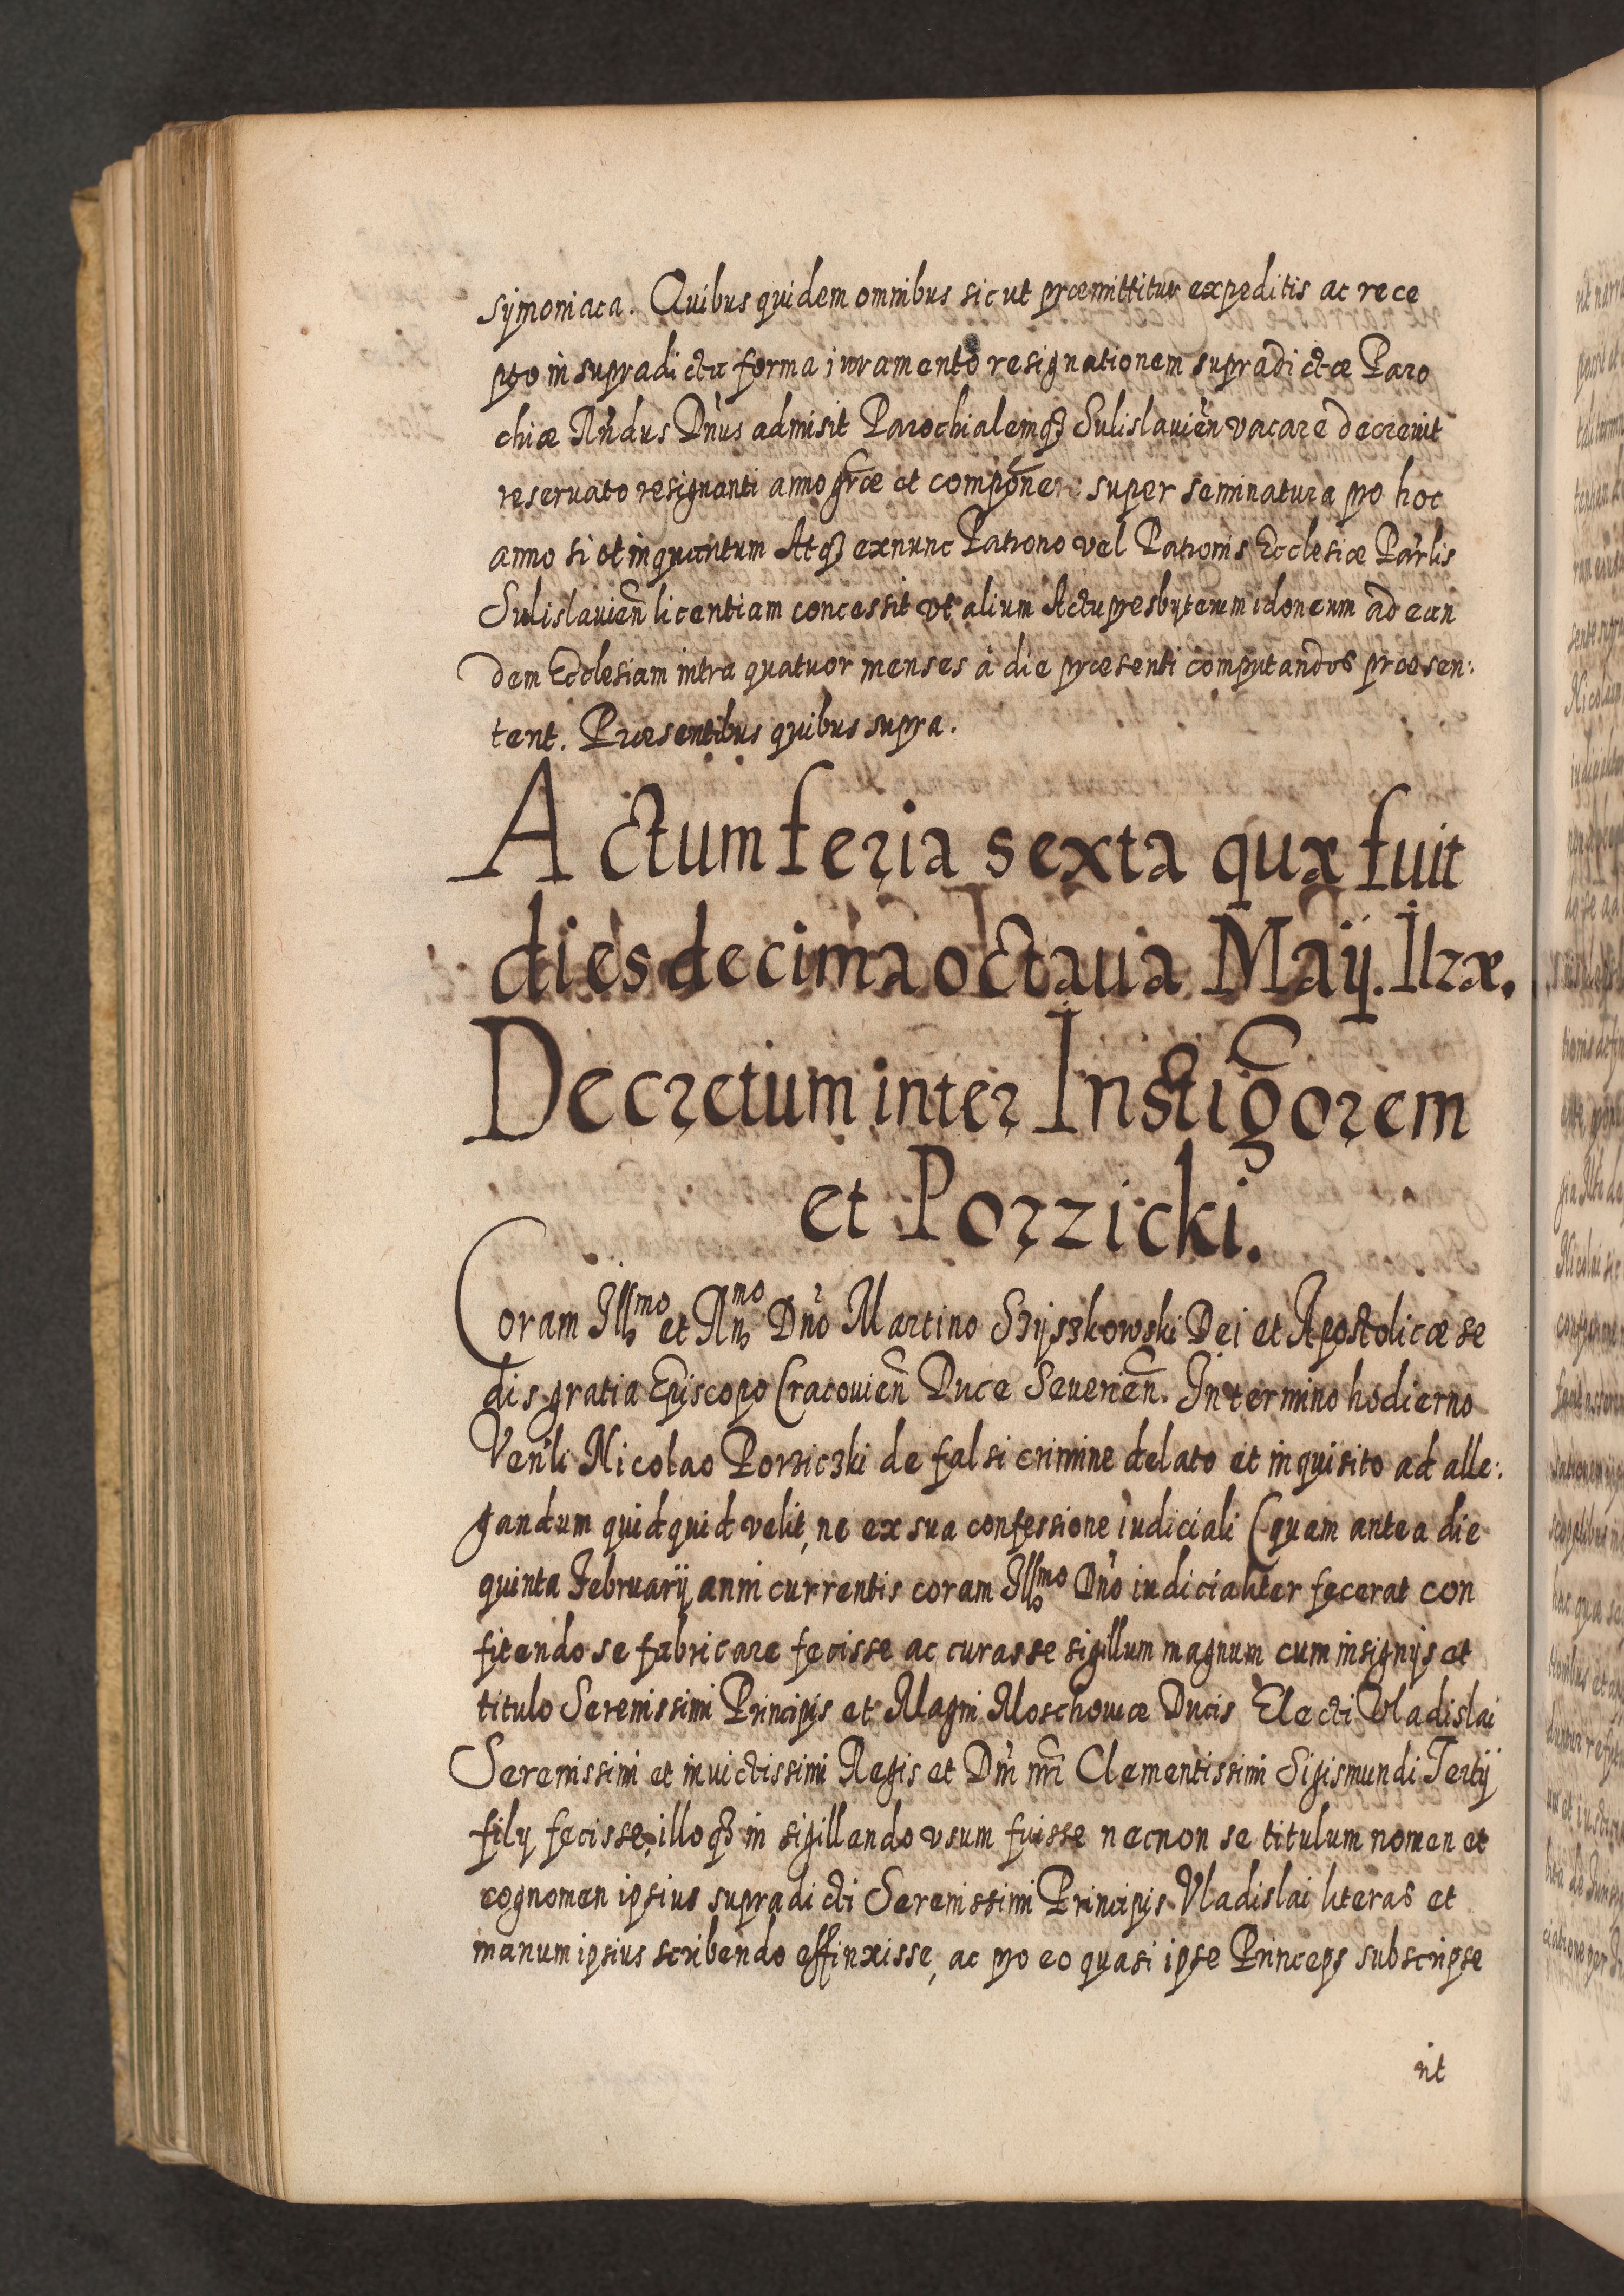 symoniaca. Quibus quidem omnibus sicut præmittitur expeditis ac rece
pto in supradicta forma iuramento resignationem supradictæ Paro
chiæ Rńdus Dńus admisit Parochialemq₃ Sulislauień vacare decreuit
reseruato resignanti anno gr̃æ et componere super seminatura pro hoc
anno si et inquantum Atq₃ exnunc Patrono vel Patronis Ecclesiæ Par̃lis
Sulislauień licentiam concessit vt alium Actupresbyterum idoneum ad ean
dem Ecclesiam intra quatuor menses à die præsenti computandos præsen:
tent. Præsentibus quibus supra.
Actum feria sexta quæ fuit
dies decima octaua Maij. Ilzæ.
Decretum inter Instig̃orem
et Porzicki.
Coram Illmo et Rno Dño Martino Szyszkowski Dei et Apostolicæ se
dis gratia Episcopo Cracouień Duce Seuerień. In termino hodierno
Veñli Nicolao Porziczki de falsi crimine delato et inquisito ad alle:
gandum quidquid velit, ne ex sua confessione iudiciali (quam antea die
quinta Februarij anni currentis coram Illmo Dño iudicialiter fecerat con
fitendo se fabricare fecisse ac curasse sigillum magnum cum insignijs et
titulo Serenissimi Principis et Magni Moschouiæ Ducis Electi Vladislai
Serenissimi et inuictissimi Regis et Dñi nr̃i Clementissimi Sigismundi Tertij
filij fecisse, illoq₃ in sigillando vsum fuisse necnon se titulum nomen et
cognomen ipsius supradicti Serenissimi Principis Vladislai literas et
manum ipsius scribendo effinxisse, ac pro eo quasi ipse Princeps subscripse
rit